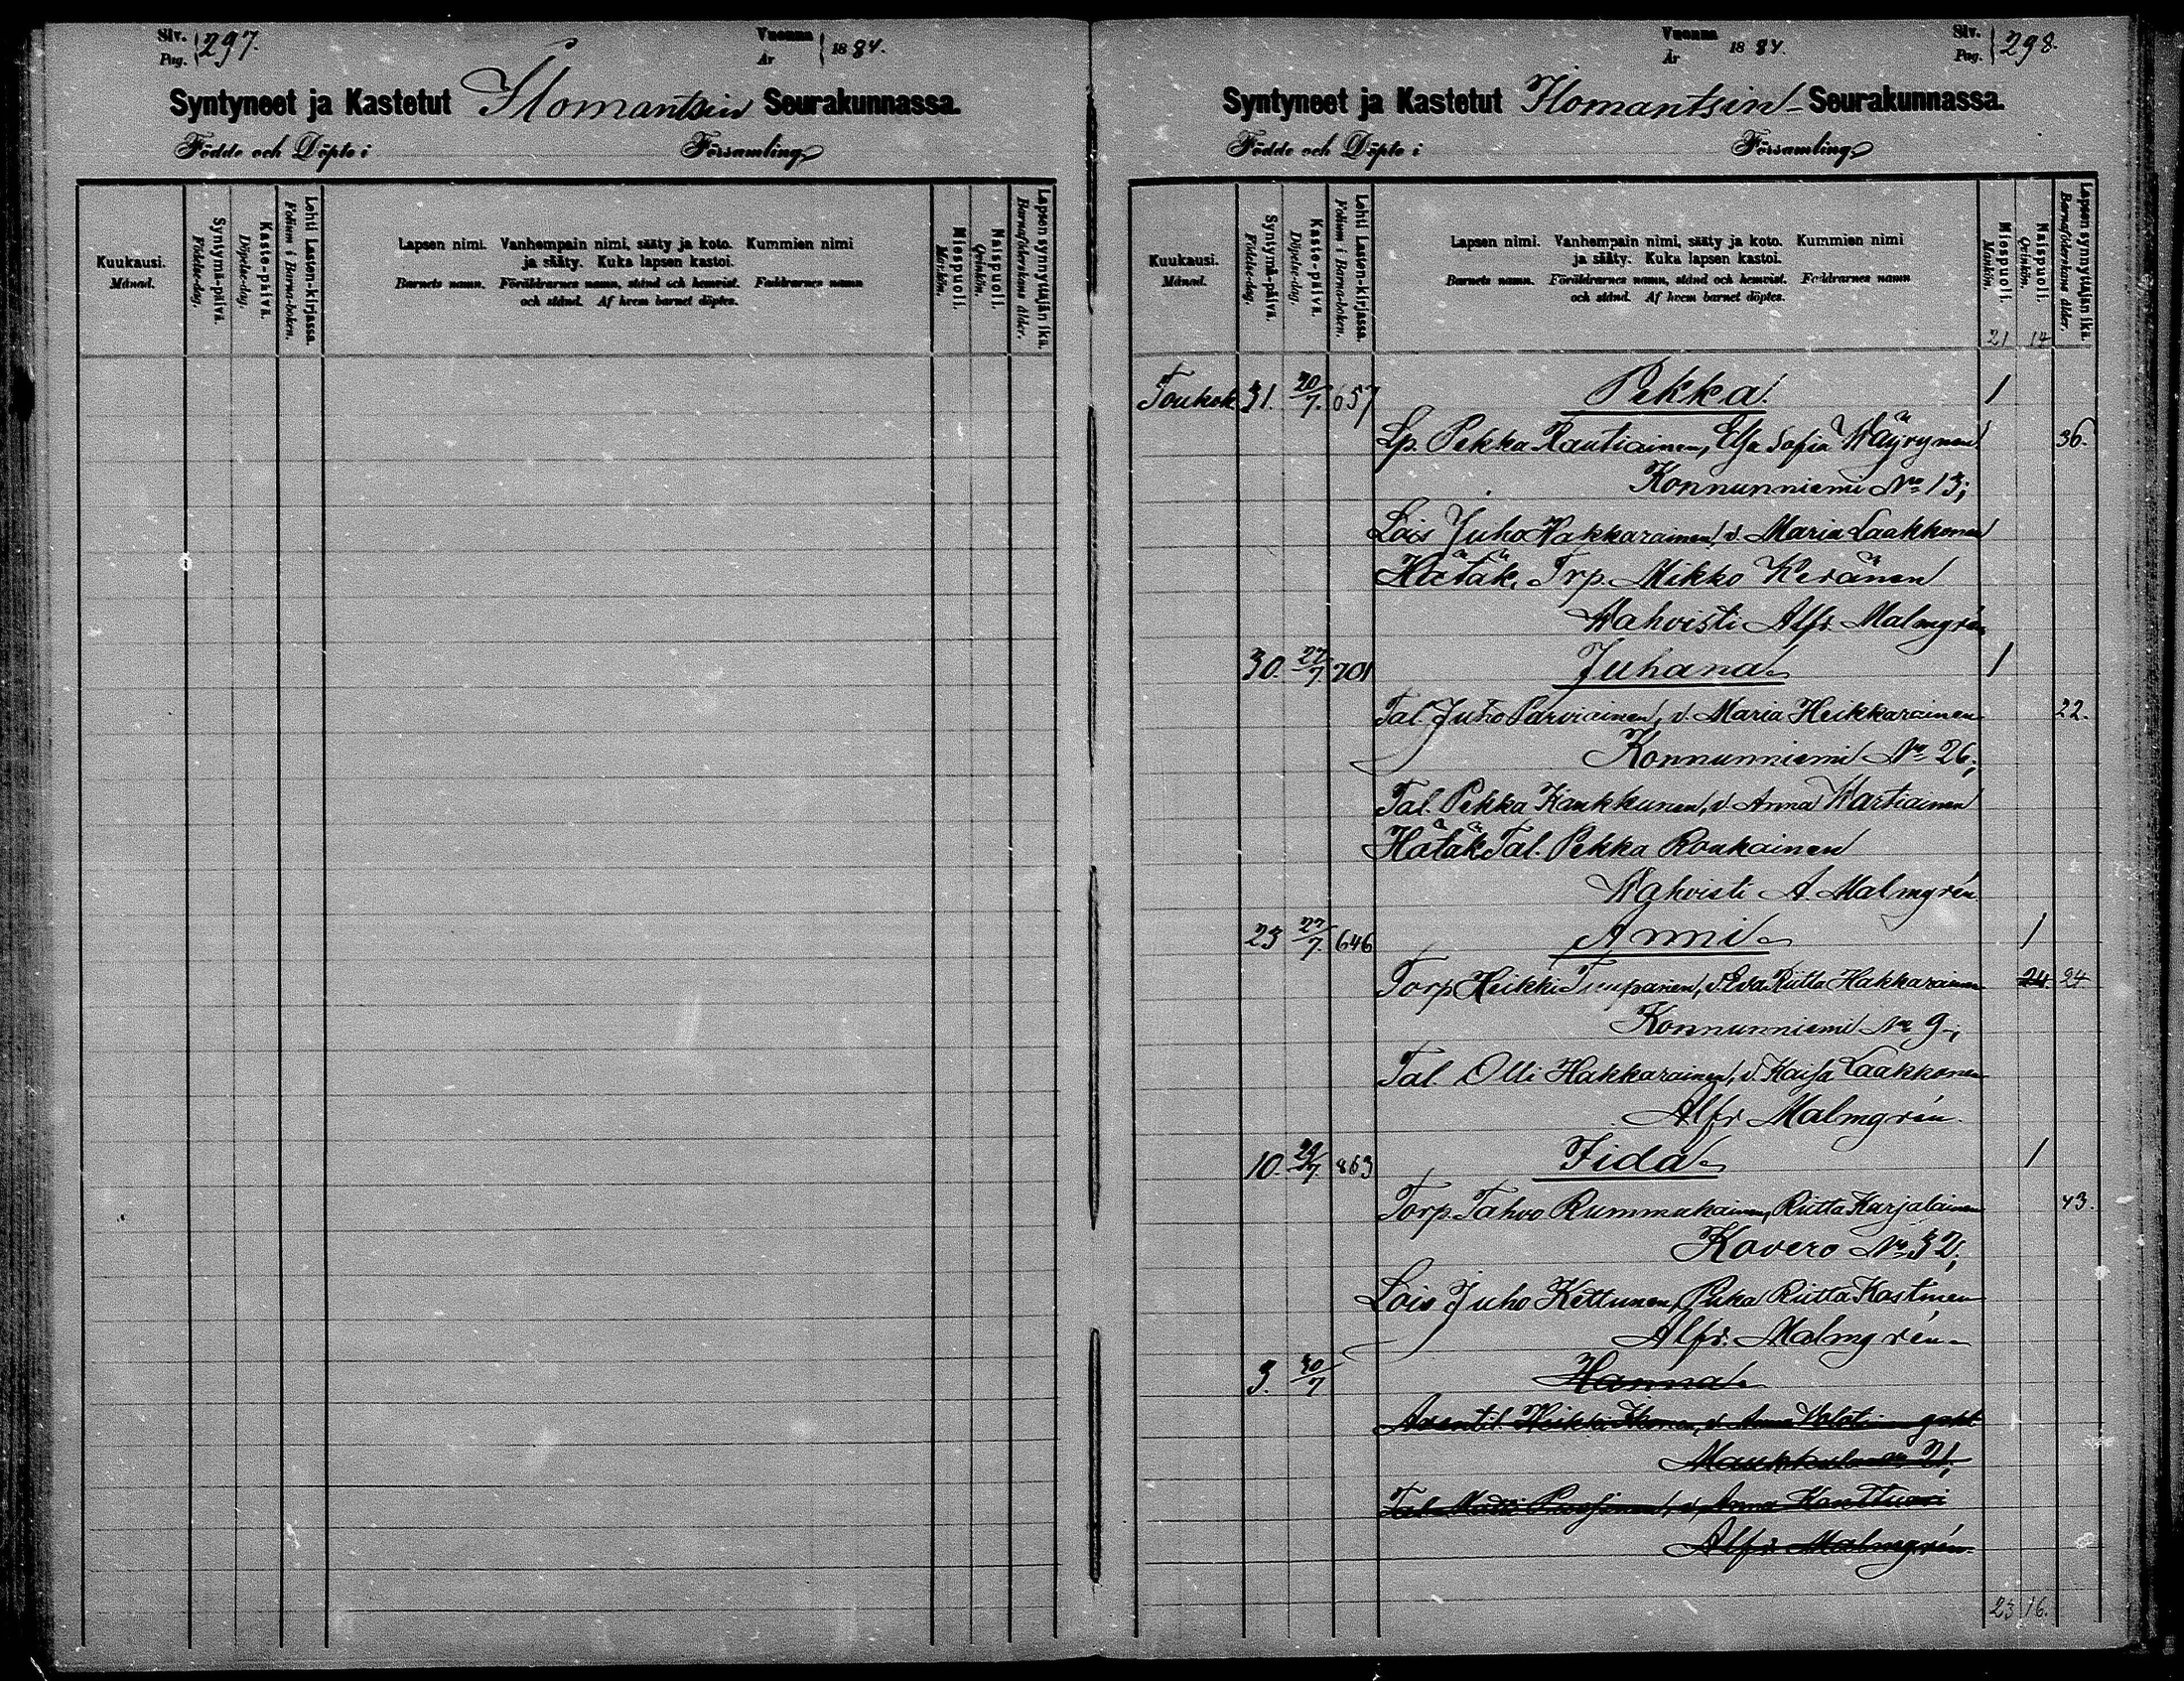 Siv. Pag. 297. Vuonna År 1884.
Syntyneet ja Kastetut Ilomantsin Seurakunnassa.
Födde och Döpte i Församling
Kuukausi. Månad.
Syntymä-päivä. Födelse-dag.
Kaste-päivä. Döpelse-dag.
Lehti Lasten-kirjassa. Folium i Barna-boken.
Lapsen nimi. Vanhempain nimi, sääty ja koto. Kummien nimi
ja sääty. Kuka lapsen kastoi.
Barnets namn. Föräldrarnes namn, stånd och hemvist. Faddrarnes namn
och stånd. Af hvem barnet döptes.
Miespuoli. Mankön.
Naispuoli. Qvinkön.
Lapsen synnyttäjän ikä. Barnaföderskans ålder.
Vuonna År 1884. Siv. Pag. 298.
Syntyneet ja Kastetut Ilomantsin Seurakunnassa.
Födde och Döpte i Församling
Kuukausi. Månad.
Syntymä-päivä. Födelse-dag.
Kaste-päivä. Döpelse-dag.
Lehti Lasten-kirjassa. Folium i Barna-boken.
Lapsen nimi. Vanhempain nimi, sääty ja koto. Kummien nimi
ja sääty. Kuka lapsen kastoi.
Barnets namn. Föräldrarnes namn, stånd och hemvist. Faddrarnes namn
och stånd. Af hvem barnet döptes.
Miespuoli. Mankön.
Naispuoli. Qvinkön.
Lapsen synnyttäjän ikä. Barnaföderskans ålder.
21 14
Toukok. 31. 20/7. 657 Pekka. 1
Lp. Pekka Rautiainen, Elsa Sofia Wäyrynen 36.
Konnunniemi No 13;
Lois Juho Hakkarainen, v. Maria Laakkonen
Hätäk. Trp. Mikko Keränen
Wahvisti Alfr. Malmgrén
30. 27/7. 701 Juhana 1
Tal. Juho Parviainen, v. Maria Heikkarainen 22.
Konnunniemi No 26;
Tal. Pekka Kaukkunen, v. Anna Wartiainen
Hätäk. Tal. Pekka Roukainen
Wahvisti A. Malmgrén
23 27/7. 646 Anni 1
Torp. Heikki v. Eva Riitta Hakkarainen 24 24
Konnunniemi No 9,
Tal. Olli Hakkarainen, v. Kaisa Laakkonen
Alfr. Malmgrén.
10. 29/7. 863 Fida 1
Torp. Tahvo Rummukainen, Riitta Karjalainen 43.
Kovero No 32;
Lois Juho Kettunen, Riitta Kostinen
Alfr. Malmgrén
3. 30/7 Hanna
Heikki v. Anna
21,
Tal. Matti v. Anna
Alfr. Malmgrén.
23 16.